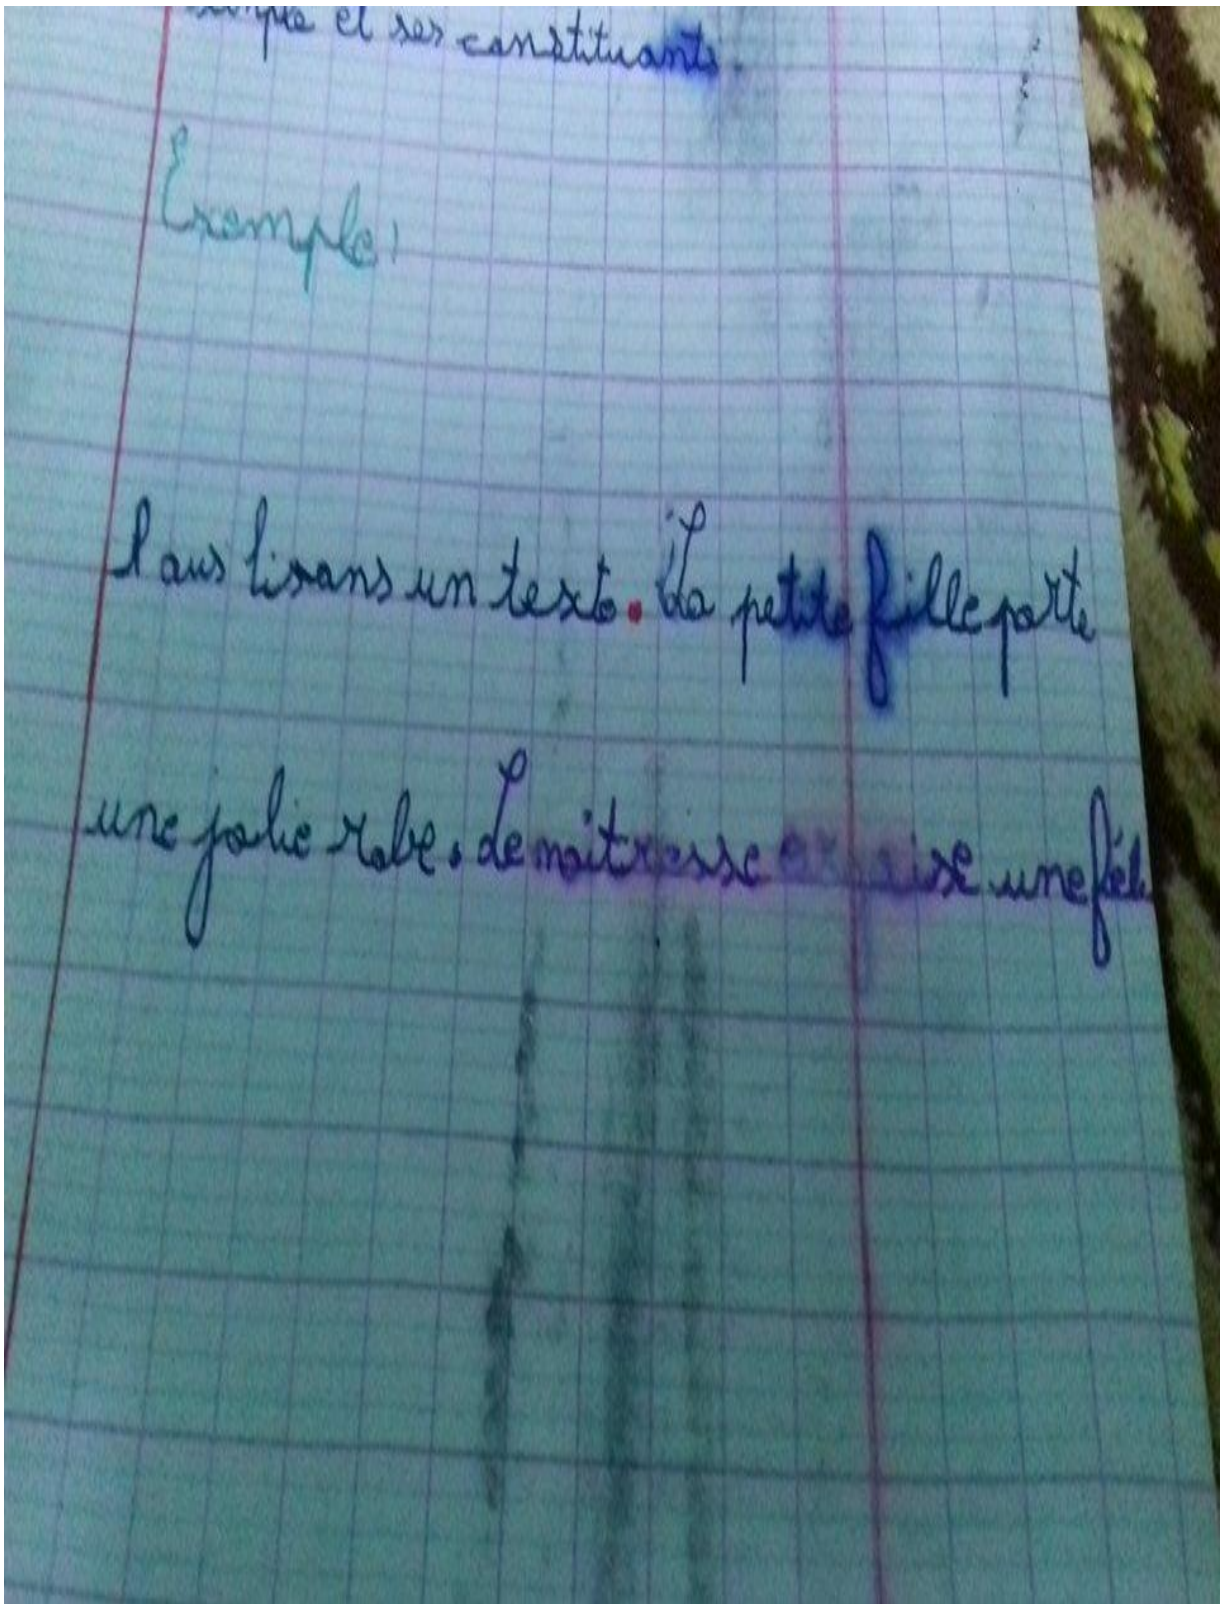 et ses constituants.
Exemple:
Nous lisons un texte. La petite fille porte
une jolie robe. Le maîtresse une